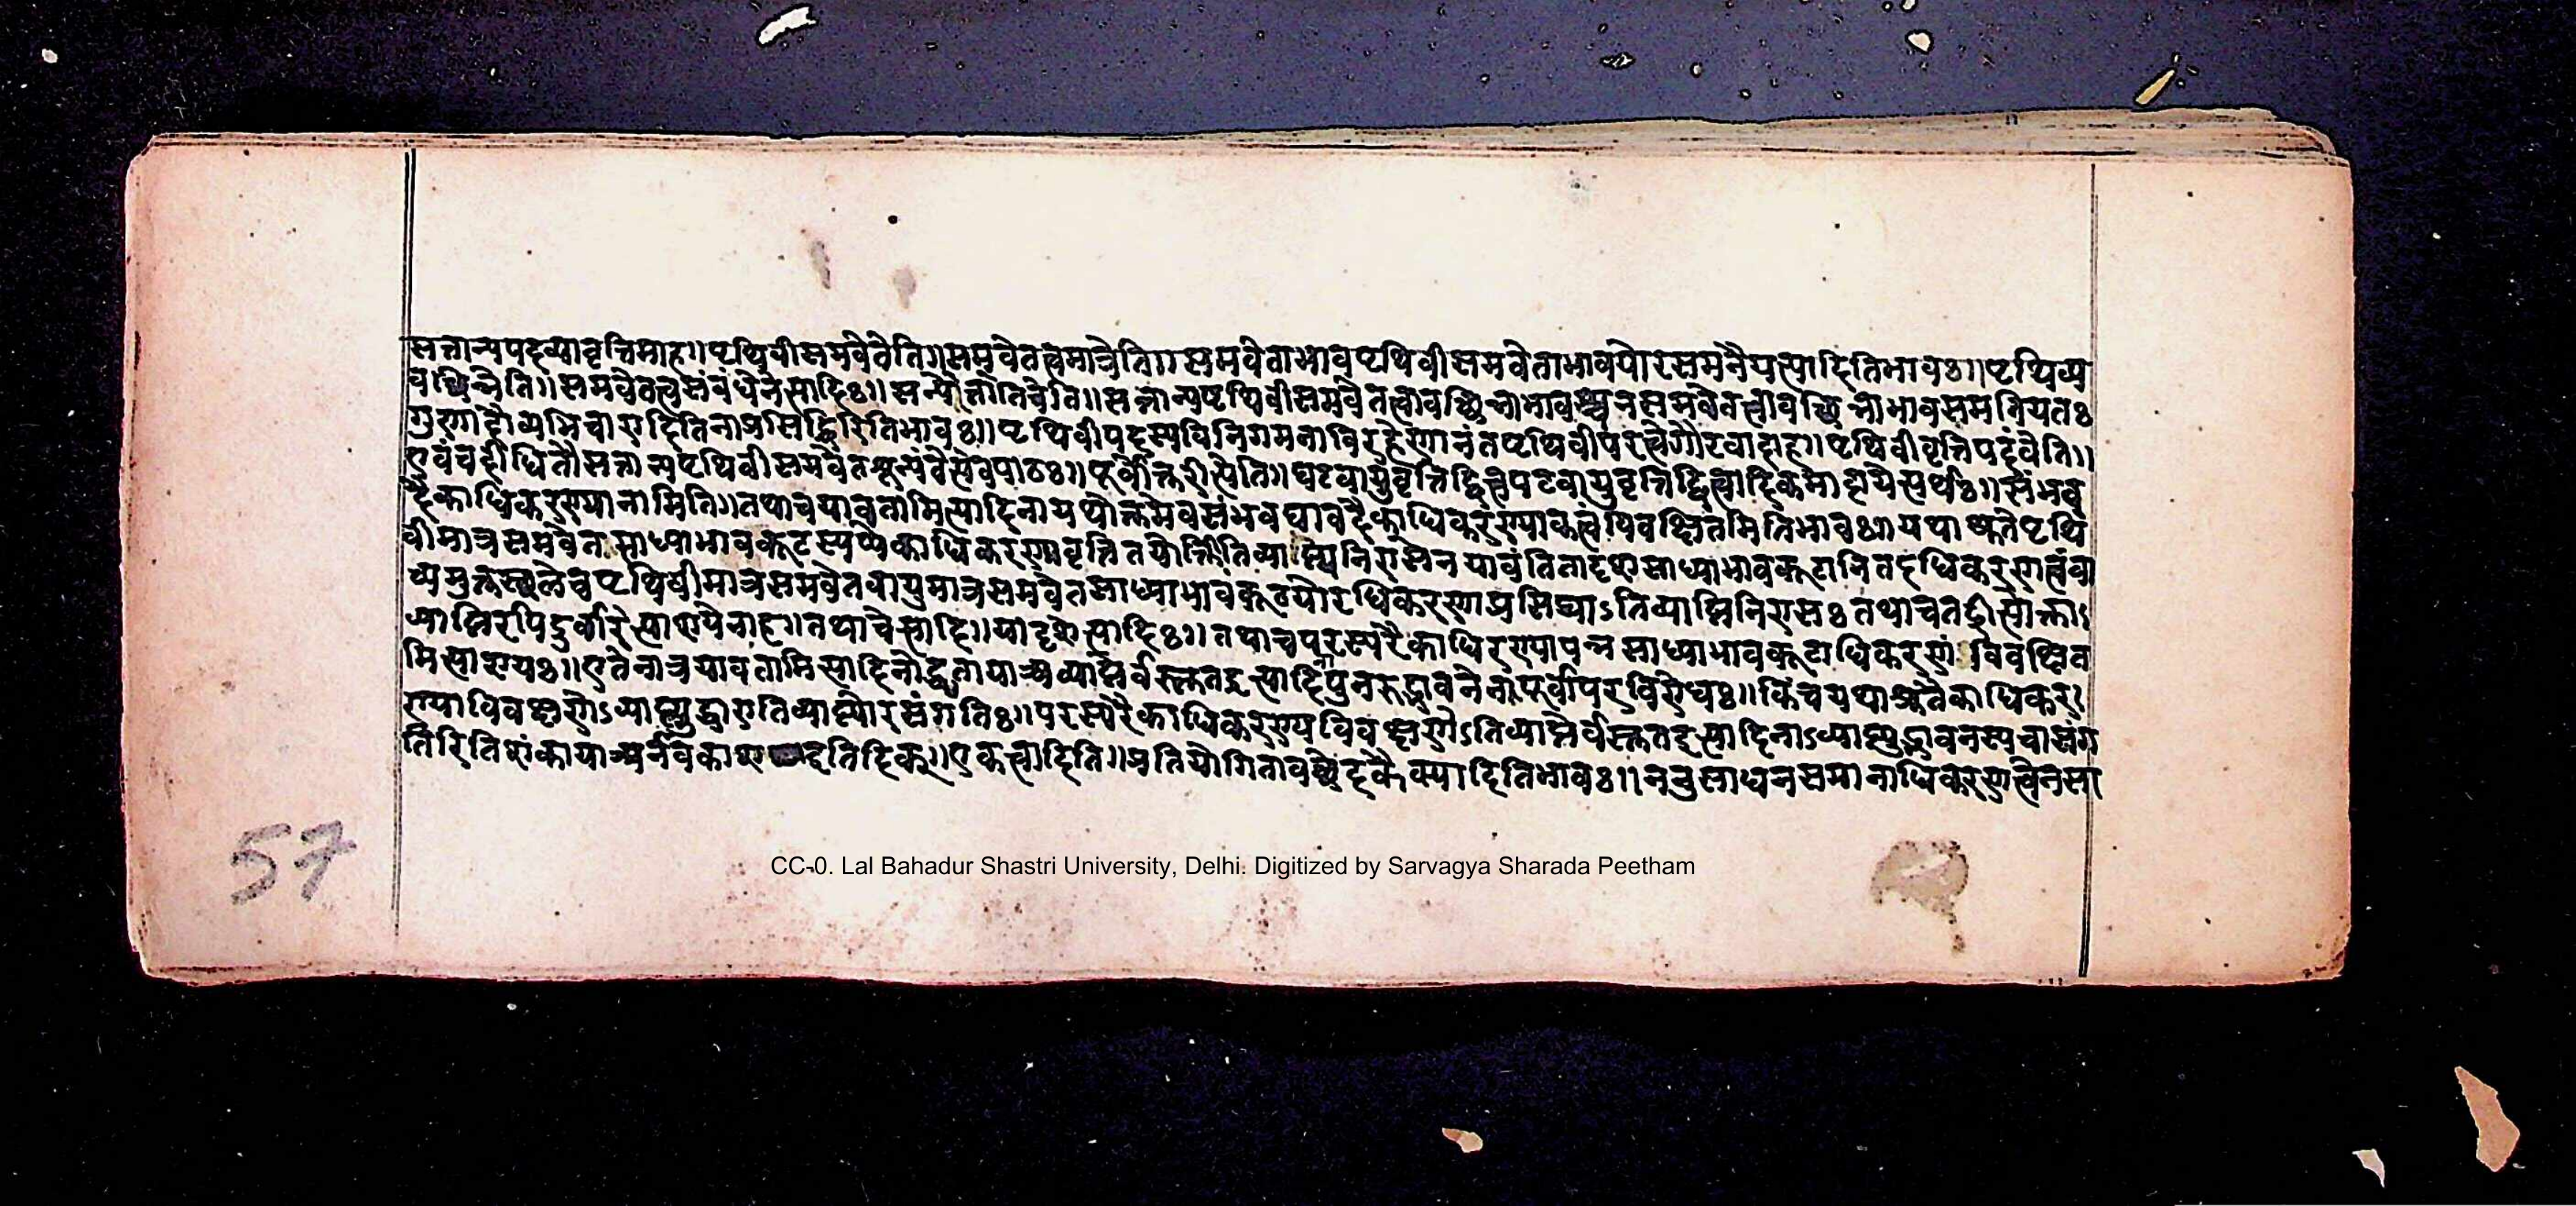 सत्तान्यपदव्यावृत्तिमाह॥पृथिवीसमवेतेति॥समवेतत्वमात्रेति॥समवेताभावपृथिवीसमवेताभावयोरसमनैयत्यादितिभावः॥पृथिव्य
वच्छिन्नेति॥समवेतत्वसंबंधेनेत्यादिः॥सत्तान्यपृथिवीसमवेतत्वावच्छिन्नाभावस्य समवेतत्वावच्छिन्नाभावसमनियतः
गुणादौव्यभिचारादितिनाप्रसिद्धिरितिभावः॥पृथिवीपदस्यविनिगमनाविरहेणानंतपृथिवीपरत्वेगौरवादाह॥पृथिवीवृत्तिपदंवेति॥
एवंचदीधितौसत्तान्यपृथिवीसमवेतशून्यंवेत्येवपाठः॥पूर्वोक्तरीत्येति॥घटवायुवृत्तिद्वित्वपटवायुवृत्तिद्वित्वादिकमादायेत्यर्थः॥संभव
दैकाधिकरण्यानामिति॥तथाचयावतामित्यादिनायथोक्तमेवसंभवद्यावदैकाधिकरण्यकत्वंविवक्षितमितिभावः॥यथाश्रुतेपृथि
वीमात्रसमवेतसाध्याभावकूटस्याप्येकाधिकरणावृत्तितयोक्तातिव्याप्त्यनिरासेन यावंतितादृशसाध्याभावकूटानितदधिकरणत्वंवा
च्यमुक्तस्थलेचपृथिवीमात्रसमवेतवायुमात्रसमवेतसाध्याभावकूटयोरधिकरणाप्रसिद्ध्याऽतिव्याप्तिनिरासः तथाचतद्रीत्योक्ता
व्याप्तिरपिदुर्वारेत्याशयेनाह॥तथाचेत्यादि॥यादृशेत्यादिः॥तथाचपरस्परैकाधिरण्यापन्नसाध्याभावकूटाधिकरणं विवक्षित
मित्याशयः॥एतेनात्रयावतामित्यादिनोद्धृतायाअव्याप्तेर्वस्तुतइत्यादिपुनरुद्भावनेनपूर्वापरविरोधः॥किंचयथाश्रुतैकाधिकर
ण्याविवक्षणेऽव्याप्त्युद्धारातिव्याप्त्योरसंगतिः॥परस्परैकाधिकरण्यविवक्षणेऽतिव्याप्तेर्वस्तुतइत्यादिनाऽव्याप्त्युद्भावनस्यचासंग
तिरितिशंकायाअनवकाश इतिदिक्॥एकत्वादिति॥प्रतियोगितावच्छेदकैक्यादितिभावः॥ननुसाधनसमानाधिकरणत्वेनसा
57
CC-0. Lal Bahadur Shastri University, Delhi. Digitized by Sarvagya Sharada Peetham